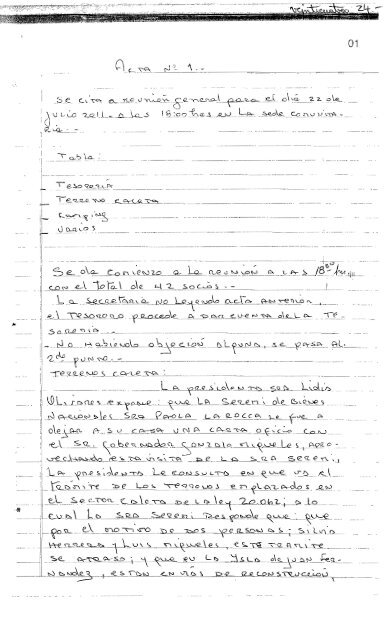 veinticuatro 24.-
01
Acta Nº 1.-
Se cita a reunión general para el día 22 de
Julio 2011.- a las 18:00 hrs en La sede comunita-
ria.-
Tabla:
- Tesorería
- Terreno Caleta
- Camping
- Varios
Se da comienzo a la reunión a las 18:30 hrs
con el total de 42 socios.-
La secretaria no leyendo acta anterior,
el tesorero procede a dar cuenta de la te-
sorería.-
- No habiendo objeción alguna, se pasa al
2do punto.-
Terrenos Caleta:
La presidenta Sra. Lidis
expone: que la Seremi de Bienes
Nacionales Sra Paola La Rocca se fue a
dejar a su casa una carta oficio con
el Sr. Gobernador Gonzalo Miqueles, apro-
vechando esta visita de la Sra Seremi,
La presidenta le consulta en que va el
trámite de los terrenos emplazados en
el sector Caleta de la ley 20.062; a lo
cual la Sra Seremi responde que: que
por el motivo de dos personas; Silvio
Herrera y Luis Miqueles, este trámite
se atrasó; y que en la Isla de Juan Fer-
nandez, están en vías de reconstrucción,